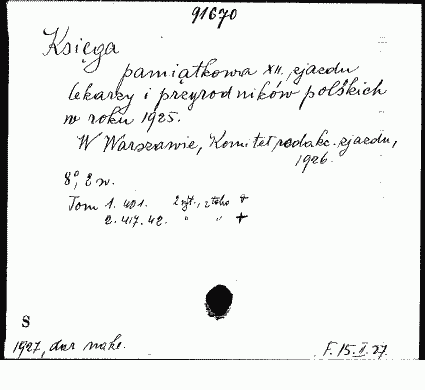 91670
Księga
pamiątkowa XII. zjazdu
lekarzy i przyrodników polskich
w roku 1925.
W Warszawie, Komitet redakc. zjazdu,
1926.
8°, 2 w.
Tom 1. 401.
2. 417. 42. " " +
S
1927, dar nakł.
F. 15. II. 27.